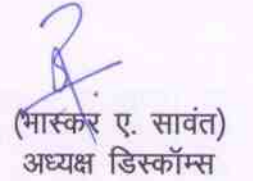 (भास्कर ए. सावंत)
अध्यक्ष डिस्कॉम्स